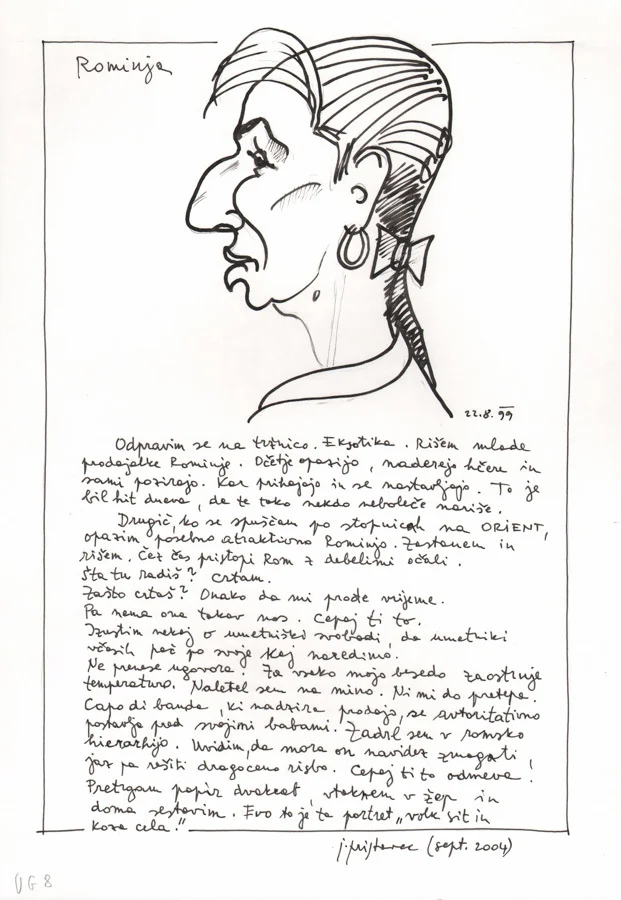 Rominja
22.8.99
Odpravim se na tržnico. Eksotika. Rišem mlade
prodajalke Rominje. Očetje opazijo, naderejo hčere in
sami pozirajo. Kar prihajajo in se nastavljajo. To je
bil hit dneva, da te tako nekdo neboleče nariše.
Drugič, ko se spuščam po stopnicah na ORIENT,
opazim posebno atraktivno Rominjo. Zastanem in
rišem. Čez čas pristopi Rom z debelimi očali.
Šta tu radiš? Crtam.
Zašto crtaš? Onako da mi prođe vrijeme.
Pa nema ona takav nos. Cepaj ti to.
Izustim nekaj o umetniški svobodi, da umetniki
včasih pač po svoje kaj naredimo.
Ne prenese ugovora. Za vsako mojo besedo zaostruje
temperaturo. Naletel sem na mino. Ni mi do pretepa.
Capo di banda, ki nadzira prodajo, se avtoritativno
postavlja pred svojimi babami. Zadrl sem v romsko
hierarhijo. Uvidim, da mora on navidez zmagati,
jaz pa rešiti dragoceno risbo. Cepaj ti to odmeva.
Pretrgam papir dvakrat, vtaknem v žep in
doma sestavim. Evo to je ta portret „volk sit in
koza cela."
j.prijternec (sept. 2004)
UG 8